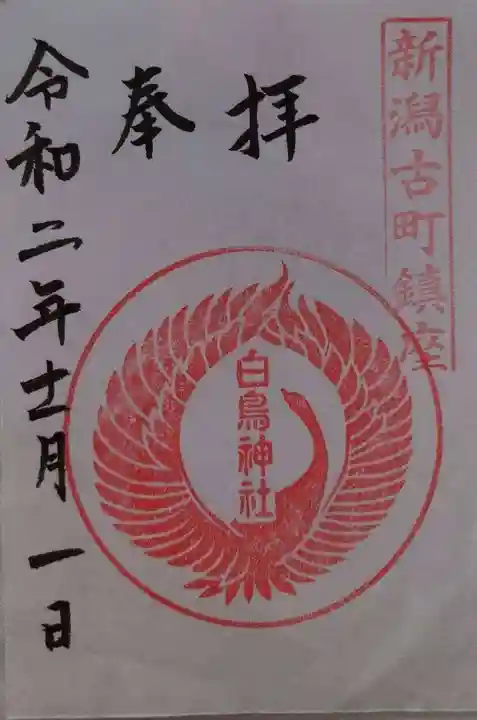 新潟古町鎮座
拝
奉
白鳥神社
令和二年十二月一日